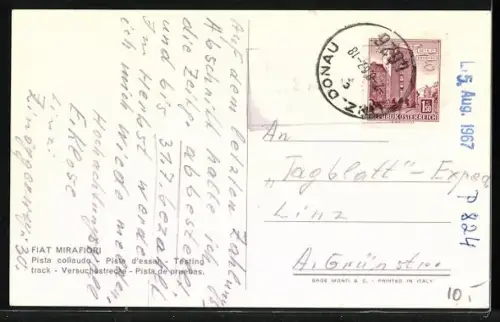 Auf dem letzten Zahlung
Abschnitt habe ich
die Zeitg. abbestellt
und bis 31.7. bezahlt.
Im Herbst werde
ich mich wieder melden.
Hochachtungsvoll
E. Klose
Linz
30.
FIAT MIRAFIORI
Pista collaudo - Pista d'essai - Testing
track - Versuchsstrecke - Pista de pruebas.
DONAU
1.50
REPUBLIK ÖSTERREICH
L. 5. Aug. 1967
P 824
An
"Tagblatt" - Exped
Linz
A. Grünstr.
BROMONTI & C. - PRINTED IN ITALY
10.-